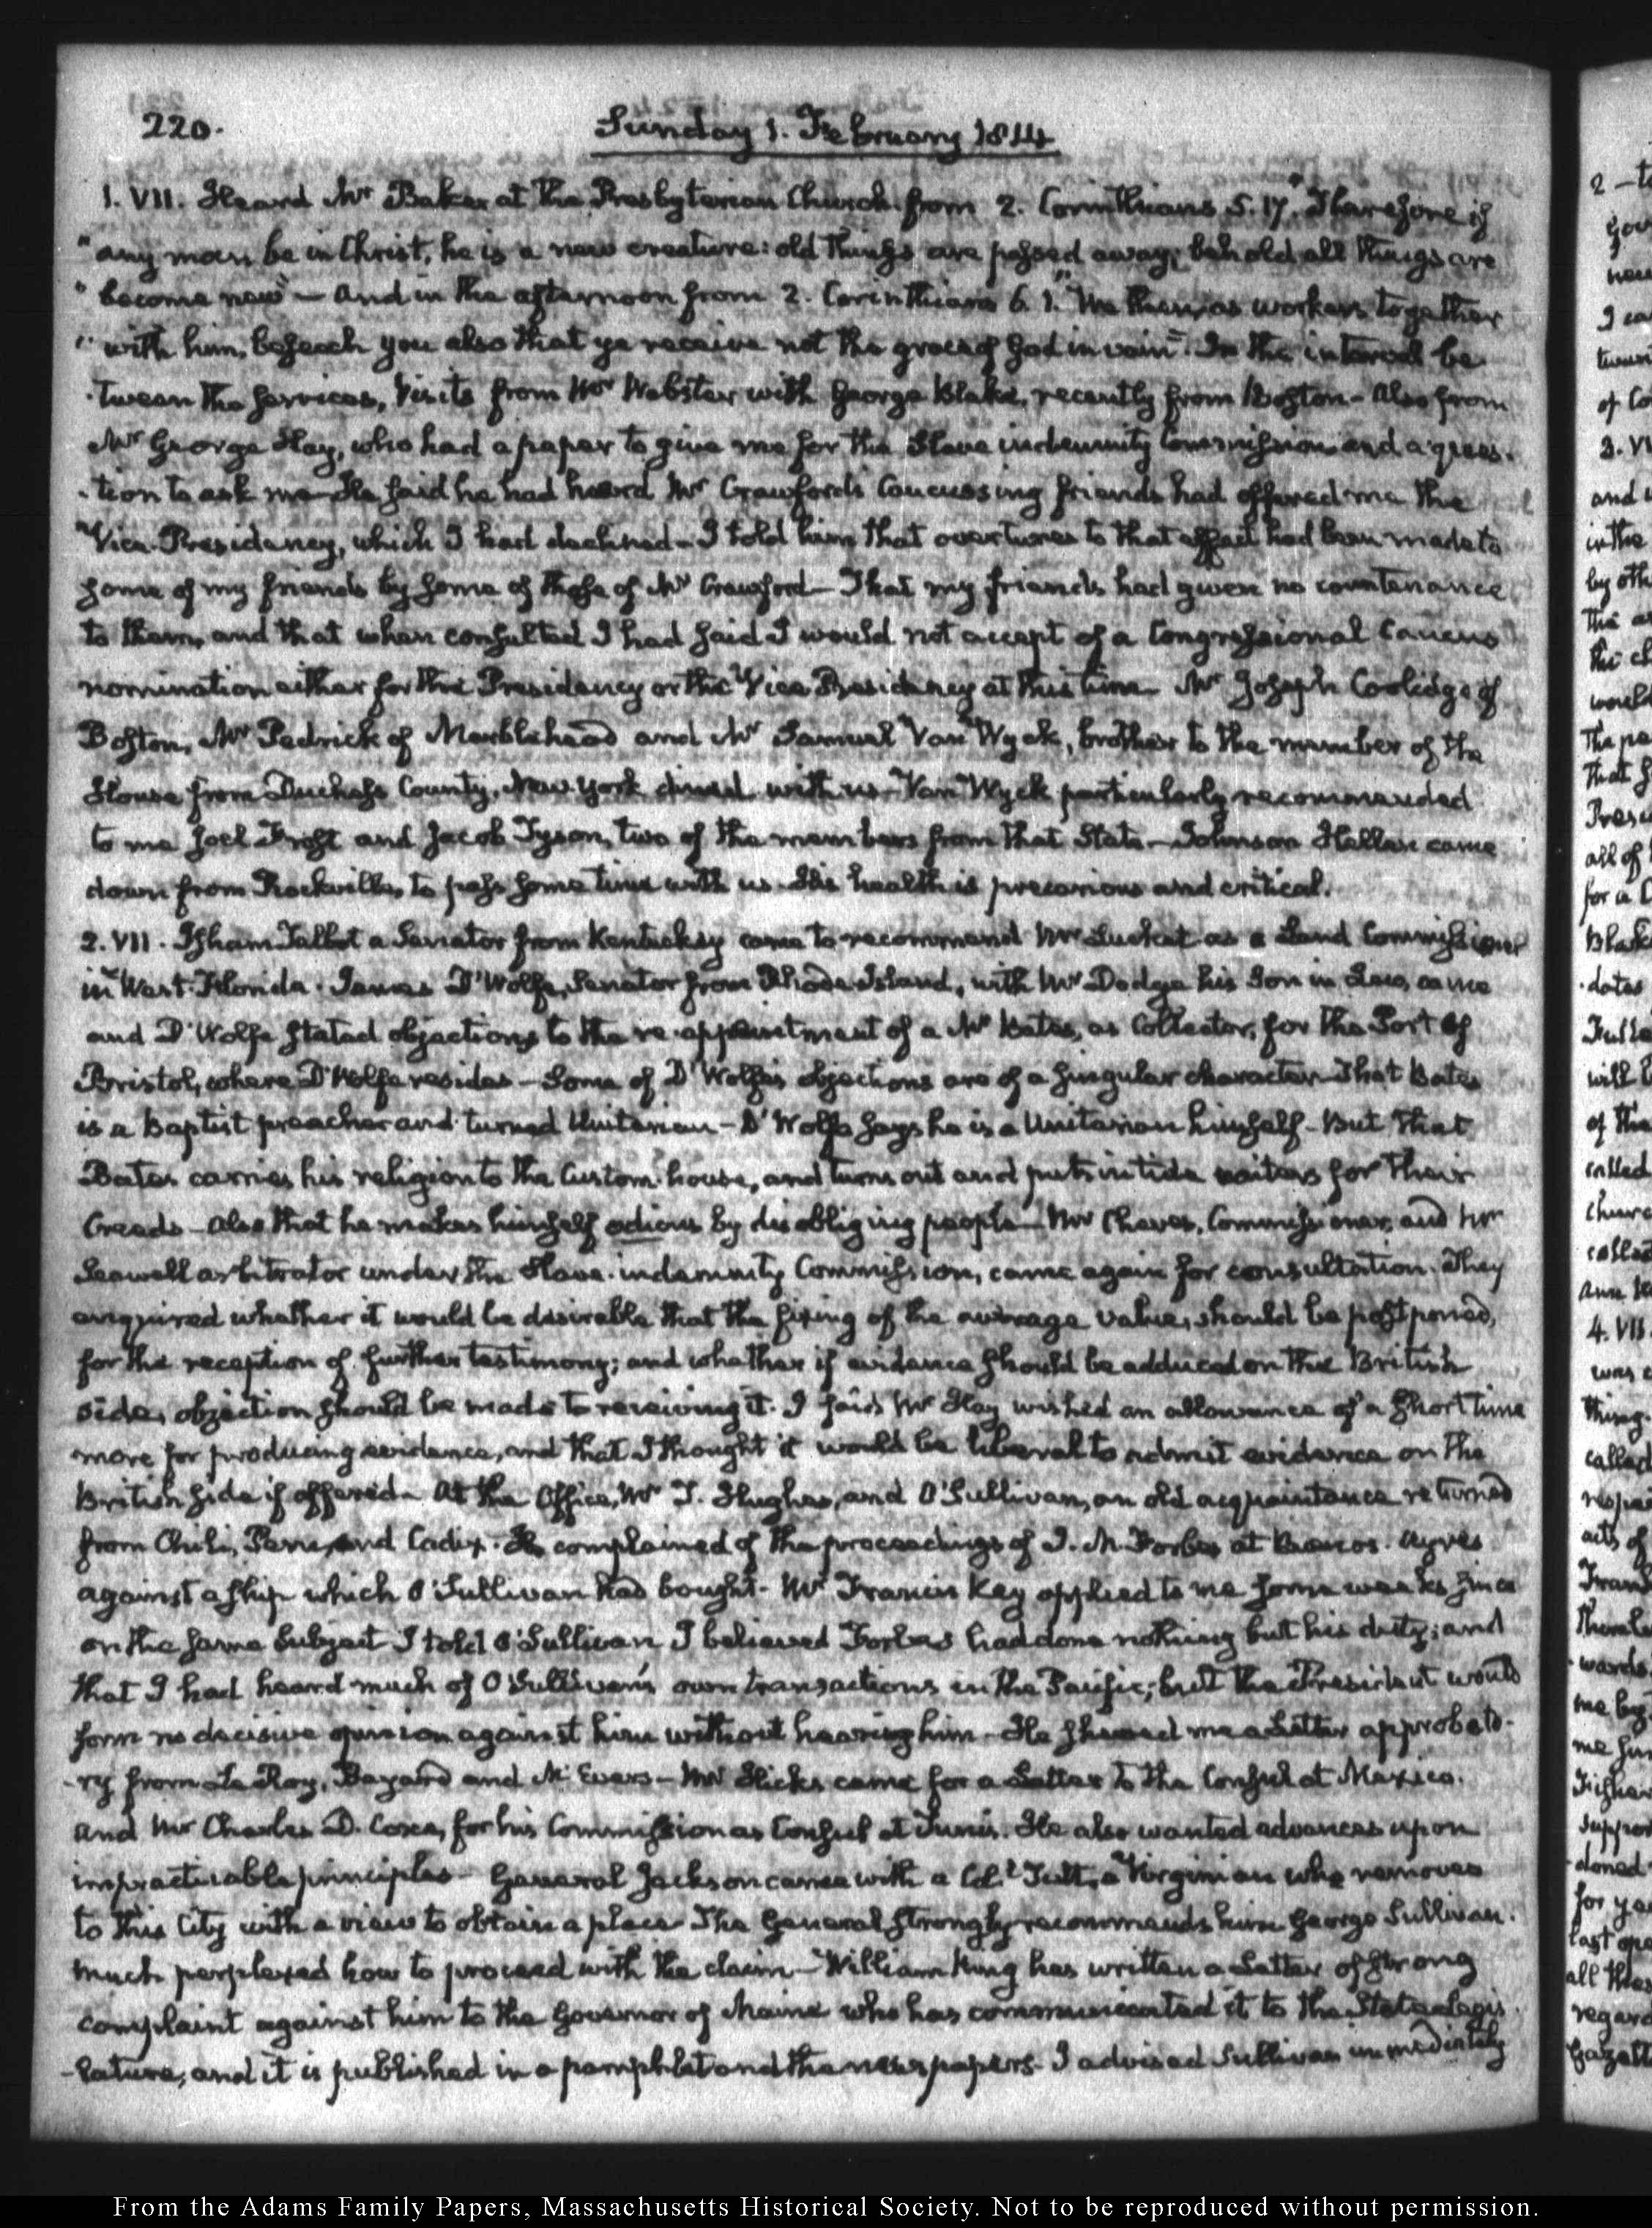 220.
Sunday 1. February 1824
1. VII. Heard Mr Baker at the Presbyterian Church from 2. Corinthians 5. 17. "Therefore if
"any man be in Christ, he is a new creature: old things are passed away; behold all things are
"become new" — and in the afternoon from 2. Corinthians 6. 1. "We then, as workers together
"with him, beseech you also that ye receive not the grace of God in vain". In the interval be-
-tween the services, Visits from Mr Webster with George Blake, recently from Boston — Also from
Mr George Hay, who had a paper to give me for the Slave indemnity Commission and a ques-
-tion to ask me — He said he had heard Mr Crawford's Caucussing friends had offered me the
Vice-Presidency, which I had declined — I told him that overtures to that effect had been made to
some of my friends by some of those of Mr Crawford — That my friends had given no countenance
to them, and that when consulted I had said I would not accept of a Congressional Caucus
nomination either for the Presidency or the Vice Presidency at this time — Mr Joseph Coolidge of
Boston, Mr Pedrick of Marblehead and Mr Samuel Van Wyck, brother to the member of the
House from Duchess County, New York dined with us — Van Wyck particularly recommended
to me Joel Frost and Jacob Tyson, two of the members from that State — Johnson Hellen came
down from Rockville, to pass some time with us. His health is precarious and critical.
2. VII. Isham Talbot a Senator from Kentucky came to recommend Mr Lucket as a Land Commissioner
in West-Florida. James D'Wolfe, Senator from Rhode-Island, with Mr Dodge his Son in Law, came
and D'Wolfe stated objections to the re-appointment of a Mr Bates, as Collector, for the Port of
Bristol, where D'Wolfe resides — Some of D'Wolfe's objections are of a singular character — That Bates
is a Baptist preacher and turned Unitarian — D'Wolfe says he is a Unitarian himself — But that
Bates carries his religion to the Custom-house, and turns out and puts in tide waiters for their
Creeds — Also that he makes himself odious by disobliging people — Mr Cheves, Commissioner, and Mr
Seawell arbitrator under the Slave-indemnity Commission, came again for consultation. They
enquired whether it would be desirable that the fixing of the average value, should be postponed,
for the reception of further testimony; and whether if evidence should be adduced on the British
side, objection should be made to receiving it. I said Mr Hay wished an allowance of a short time
more for producing evidence, and that I thought it would be liberal to admit evidence on the
British side if offered — At the Office, Mr J. Hughes, and O'Sullivan, an old acquaintance returned
from Chili, Peru, and Cadiz. He complained of the proceedings of J. M. Forbes at Buenos-Ayres
against a ship which O'Sullivan had bought — Mr Francis Key applied to me some weeks since
on the same subject I told O'Sullivan I believed Forbes had done nothing but his duty; and
that I had heard much of O'Sullivan's own transactions in the Pacific; but the President would
form no decisive opinion against him without hearing him — He shewed me a Letter approbato-
-ry from Le Roy, Bayard and McEvers — Mr Hicks came for a Letter to the Consul at Mexico.
and Mr Charles D. Coxe, for his Commission as Consul at Tunis. He also wanted advances upon
impracticable principles — General Jackson came with a Coll. Tutt, a Virginian who removes
to this City with a view to obtain a place The General strongly recommends him George Sullivan.
much perplexed how to proceed with the claim — William King has written a Letter of strong
complaint against him to the Governor of Maine who has communicated it to the State Legis-
-lature, and it is published in a pamphlet and the newspapers — I advised Sullivan immediately
From the Adams Family Papers, Massachusetts Historical Society. Not to be reproduced without permission.